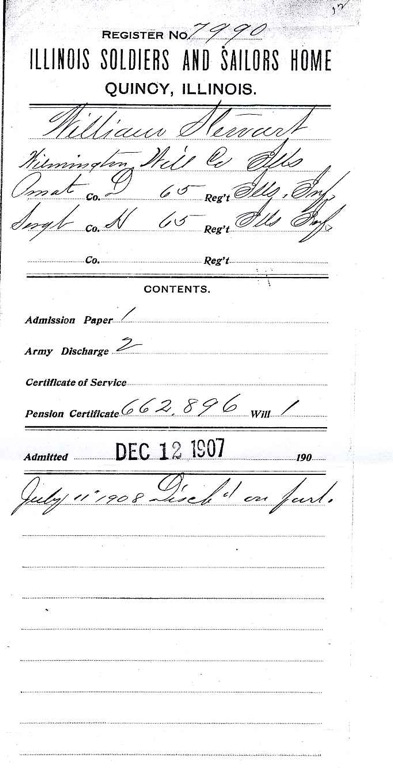 Register No. 7990
ILLINOIS SOLDIERS AND SAILORS HOME
QUINCY, ILLINOIS.
William Stewart
Wilmington, Will Co Ills
Co. D 65 Reg't Ills. Inf.
Sergt Co. H 65 Reg't Ills Inf.
Co. Reg't
CONTENTS.
Admission Paper 1
Army Discharge 2
Certificate of Service
Pension Certificate 662,896 Will 1
Admitted DEC 12 1907 190
July 11" 1908 Disch'd on furl.